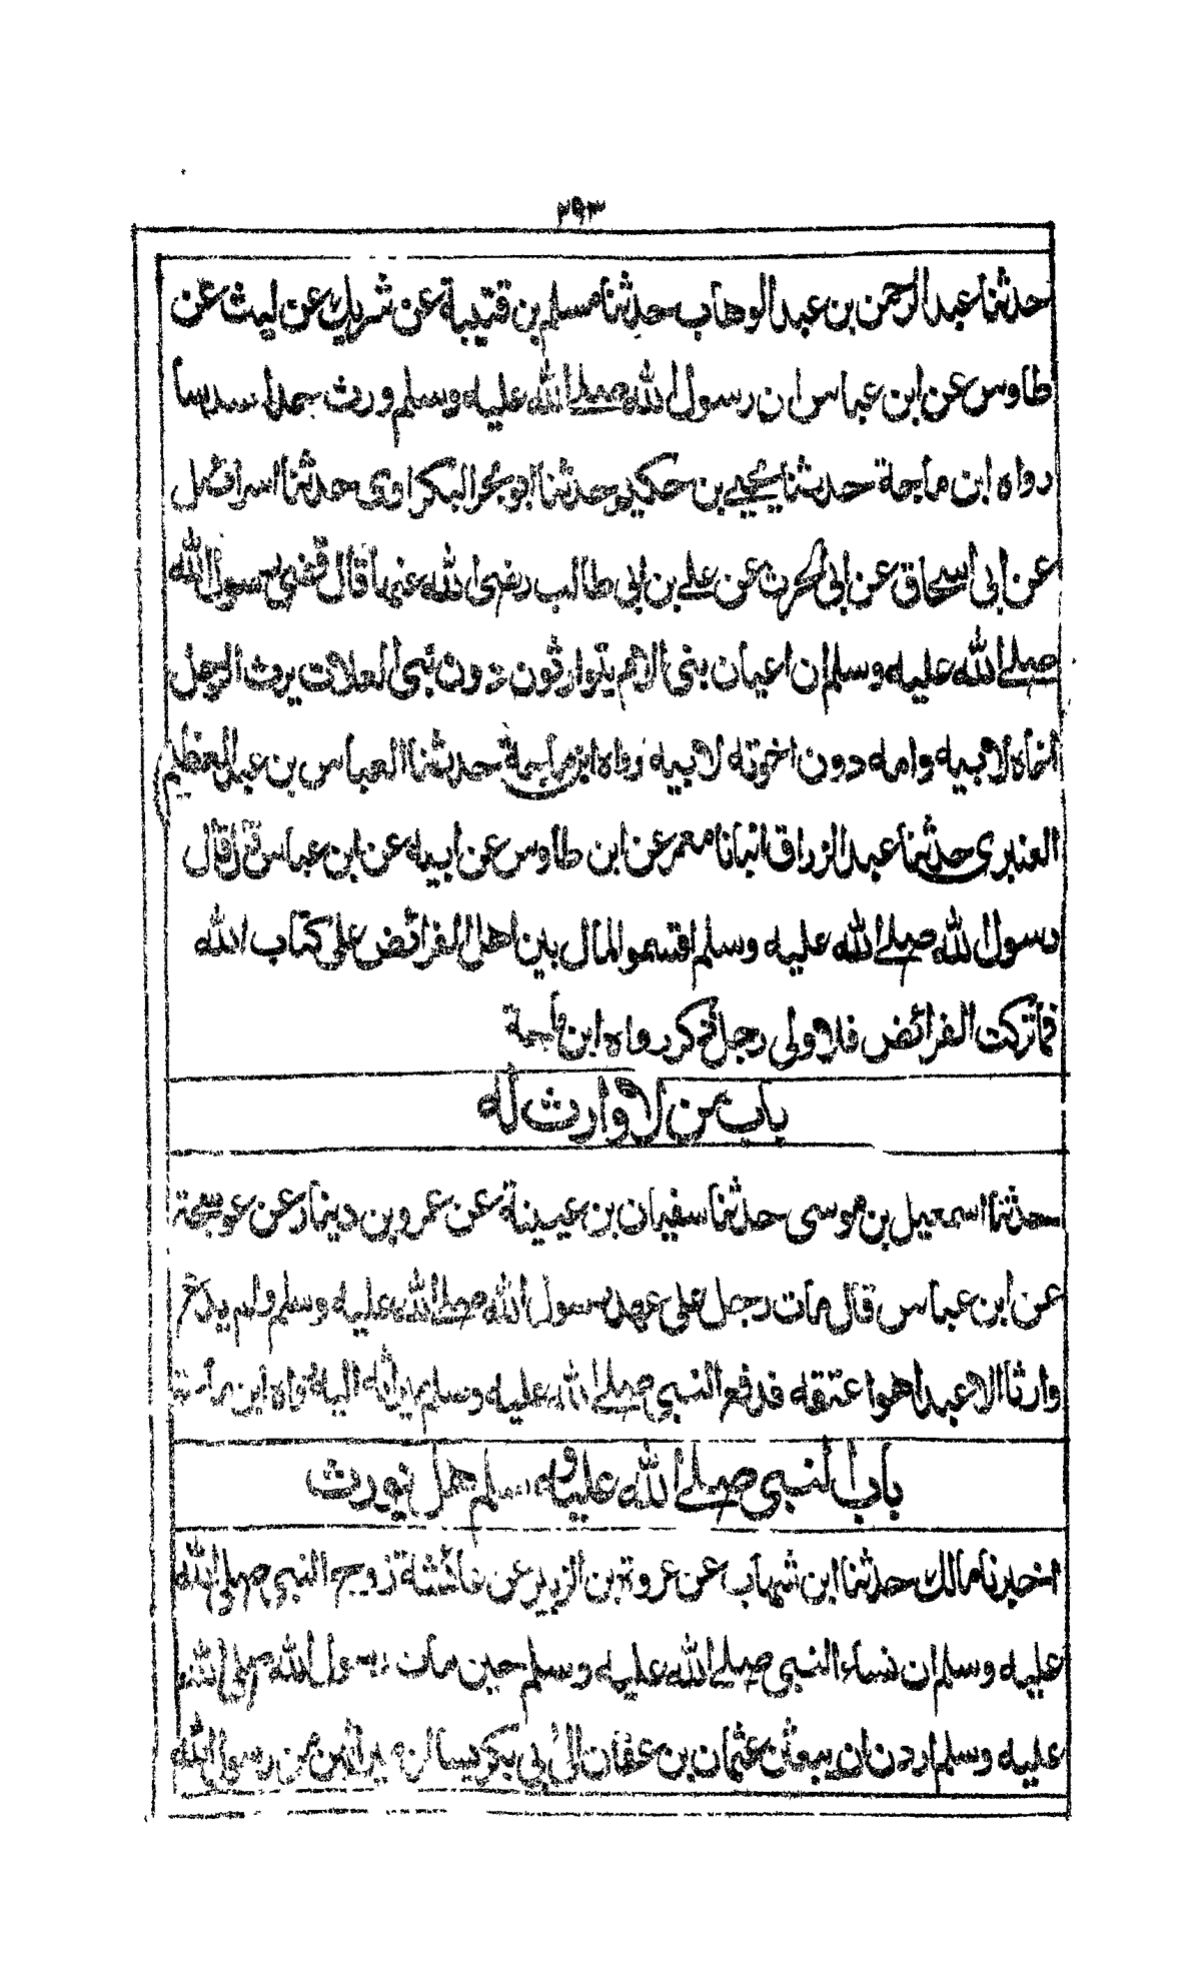 ٢٩٣
حدثنا عبد الرحمن بن عبد الوهاب حدثنا مسلم بن قتيبة عن شريك عن ليث عن
طاوس عن ابن عباس ان رسول الله صلے الله عليه وسلم ورث جدا سدسا
رواه ابن ماجة حدثنا يحيى بن حكيم حدثنا ابو بحر البكراوى حدثنا اسرائيل
عن ابى اسحاق عن ابى الحرث عن على بن ابى طالب رضى الله عنهما قال قضى رسول الله
صلے الله عليه وسلم ان اعيان بنى الام يتوارثون دون بنى العلات يرث الرجل
اخاه لابيه وامه دون اخوته لابيه رواه ابن ماجة حدثنا العباس بن عبد العظيم
العنبرى حدثنا عبد الرزاق انبانا معمر عن ابن طاوس عن ابيه عن ابن عباس قال قال
رسول الله صلے الله عليه وسلم اقسموا المال بين اهل الفرائض على كتاب الله
فما تركت الفرائض فلاولى رجل ذكر رواه ابن ماجة
باب من لا وارث له
حدثنا اسمعيل بن موسى حدثنا سفيان بن عيينة عن عمرو بن دينار عن عوسجة
عن ابن عباس قال مات رجل على عهد رسول الله صلے الله عليه وسلم ولم يدع
وارثا الا عبدا هو اعتقه فدفع النبى صلے الله عليه وسلم ميراثه اليه رواه ابن ماجة
باب النبى صلے الله عليه وسلم هل يورث
اخبرنا مالك حدثنا ابن شهاب عن عروة بن الزبير عن عائشة زوج النبى صلى الله
عليه وسلم ان نساء النبى صلے الله عليه وسلم حين مات رسول الله صلى الله
عليه وسلم اردن ان يبعثن عثمان بن عفان الى ابى بكر يسالن ميراثهن من رسول الله